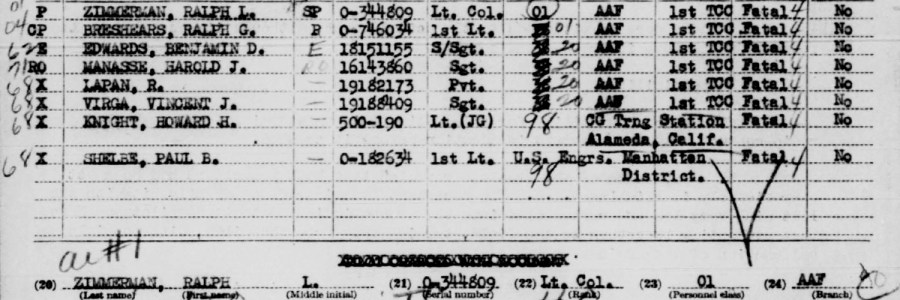 P ZIMMERMAN, RALPH L. SP 0-344809 Lt. Col. 01 AAF 1st TCC Fatal 4 No
CP BRESHEARS, RALPH G. P 0-746034 1st Lt. 01 AAF 1st TCC Fatal 4 No
E EDWARDS, BENJAMIN D. E 18151155 S/Sgt. 20 AAF 1st TCC Fatal 4 No
71 RO MANASSE, HAROLD J. 16143860 Sgt. 20 AAF 1st TCC Fatal 4 No
68 X LAPAN, R. — 19182173 Pvt. 20 AAF 1st TCC Fatal 4 No
68 X VIRGA, VINCENT J. — 19188409 Sgt. 20 AAF 1st TCC Fatal 4 No
68 X KNIGHT, HOWARD H. — 500-190 Lt.(JG) 98 CG Trng Station Fatal 4 No
Alameda, Calif.
68 X SHELBE, PAUL B. — 0-182634 1st Lt. U.S. Engrs. Manhattan Fatal 4 No
98 District.
#1
(20) ZIMMERMAN, RALPH L. (21) 0-344809 (22) Lt. Col. (23) 01 (24) AAF
(Last name) (First name) (Middle initial) (Serial number) (Rank) (Personnel class) (Branch)